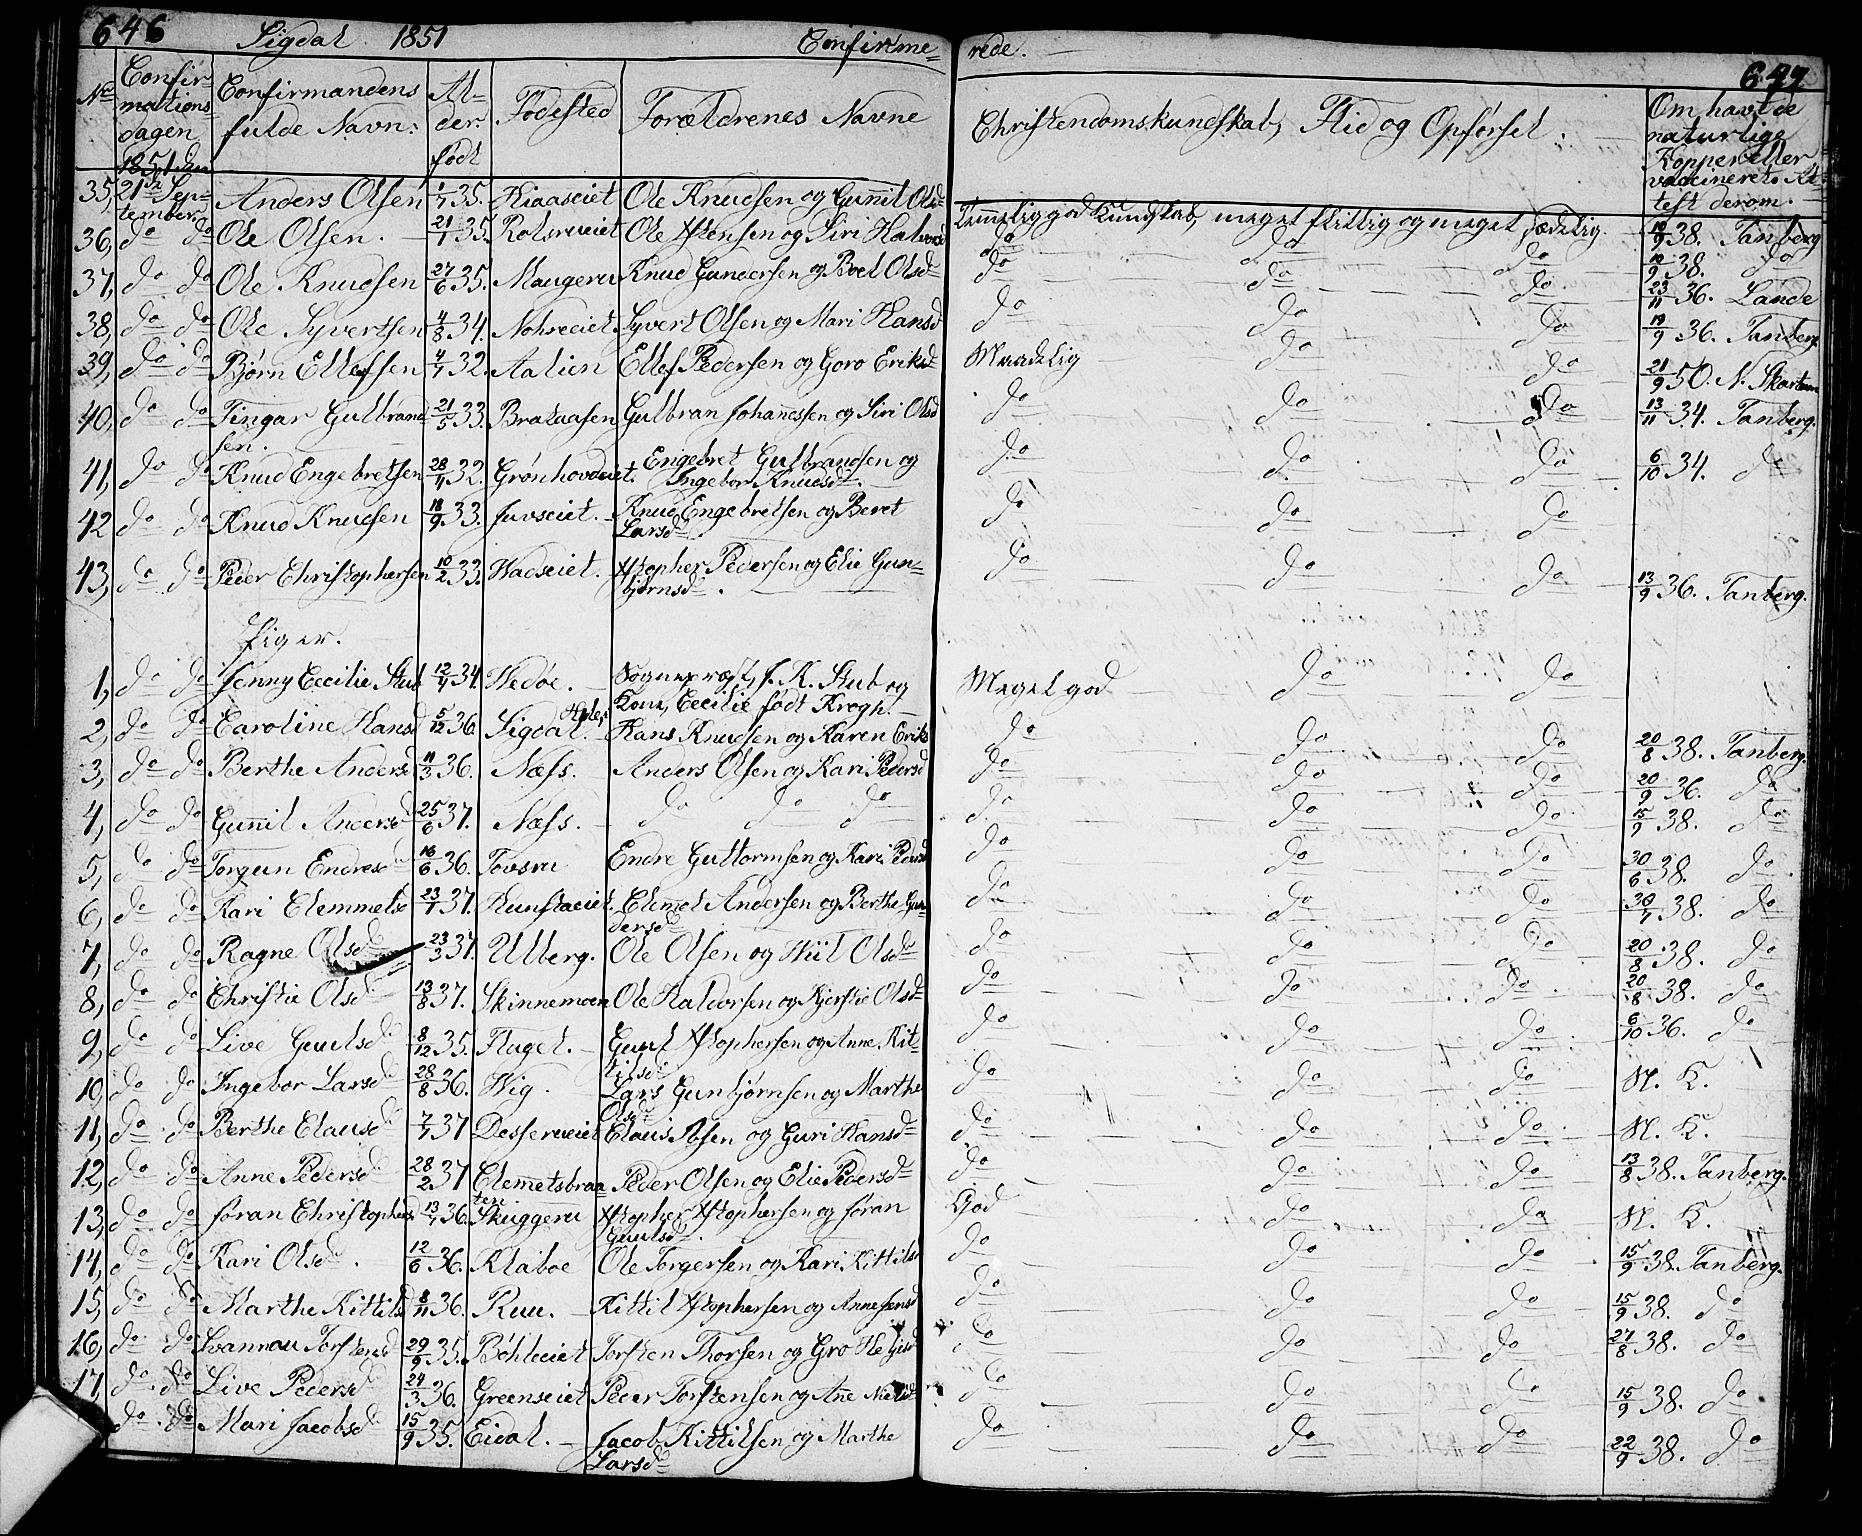 646 Sigdal 1851 Confirme= rede. 647
No Confirmationsdagen Confirmandens fulde Navn: Alder. født Fødested Forældrenes Navne Christendomskundskab, Flid og Opførsel: Om havt de naturlige Kopper eller vaccineret. Attest derom.
1851 den
35, 21de September Anders Olsen 35. Kiaaseiet Ole Knudsen og Gunnil Olsd Temelig god Kundskab, meget flittig og meget sædelig. 19/9 38. Tanberg
36, do do Ole Olsen. 21/1 35. Ole Stensen og Siri Halvorsd do do do 19/9 38. do
37, do do Ole Knudsen 27/6 35. Maugerud Knud Gundersen og Boel Olsd do do do 23/11 36. Lande
38, do do Ole Syvertsen 4/8 34. Nohreeiet Syvert Olsen og Mari Hansd do do do 19/9 36. Tanberg
39, do do Bjørn Ellefsen 32. Aalien Ellef Pedersen og Goro Eriksd Maadelig do do 21/9 50. N. Skartum
40, do do Tingar Gulbrand= 21/5 33. Brataasen Gulbran Johanessen og Siri Olsd do do do 13/11 34. Tanberg.
sen.
41, do do Knud Engebretsen 28/4 32. Grønhovdeiet. Engebret Gulbrandsen og do do do 6/10 34. do
Ingebor Knudsd.
42 do do Knud Knudsen 18/9 33. Juvseiet. Knud Engebretsen og Beret do do do
Larsd
43, do do Peder Christophersen 10/2 33. Hadseiet. Xstopher Pedersen og Elie Gun= do do do 13/9 36. Tanberg.
bjørnsd.
Piger.
1, do do Jenny Cecilie Stub 12/4 34. Hedøe. Sogneprest, J. K. Stub og Meget god do do
Kone, Cecilie født Krogh.
2, do do Caroline Hansd 5/12 36. Sigdal. Hans Knudsen og Karen Eriks do do do 20/8 38. Tanberg.
3, do do Berthe Andersd 11/3 36. Næss. Anders Olsen og Kari Pedersd do do do 20/9 36. do
4, do do Gunnil Andersd 25/6 37. Næss. do do do do do do 15/9 38. do
5, do do Torgun Endresd 16/6 36. Tovsru Endre Guttormsen og Kari Pedersd do do do 30/6 38. do
6, do do Kari Clemmetsd 23/1 37. Kunstaeiet. Clemet Andersen og Berthe Gun= do do do 38. do
dersd
7, do do Ragne Olsd 23/3 37. Ulberg. Ole Olsen og Hiil Olsd do do do 20/8 38. do
8, do do Christie Olsd 13/8 37. Skinnemoen Ole Halvorsen og Kjerstie Olsd do do do 20/8 38. do
9, do do Live Guulsd 8/12 35. Flaget. Guul Xstophersen og Anne Kit= do do do 6/10 36. do
tilsd
10, do do Ingebor Larsd 28/8 36. Wig. Lars Gunbjørnsen og Marthe do do do N. K.
Olsd
11, do do Berthe Clausd 7/7 37 Claus Ibsen og Guri Hansd do do do N. K.
12, do do Anne Pedersd 28/2 37 Clemetsbraa= Peder Olsen og Elie Pedersd do do do 13/8 38. Tanberg.
ten
13, do do Joran Christophersd 36. Skuggeru Xstopher Xstophersen og Joran God do do N. K.
Guulsd.
14, do do Kari Olsd. 12/6 36. Klaboe Ole Torgersen og Kari Kittilsd do do do 15/9 38. Tanberg.
15, do do Marthe Kittilsd 8/11 36. Ruu. Kittil Xstophersen og Anne Jensd do do do 15/9 38. do
16, do do Svannau Torstensd 29/9 35. Böhleeiet Torsten Thorsen og Gro Helgisd do do do 27/8 38. do
17, do do Live Pedersd 24/3 36. Greenseiet Peder Torstensen og Ane Nielsd do do do 15/9 38. do
do do Mari Jacobsd 15/9 35. Eidal. Jacob Kittilsen og Marthe do do do 22/9 38. do
Larsd